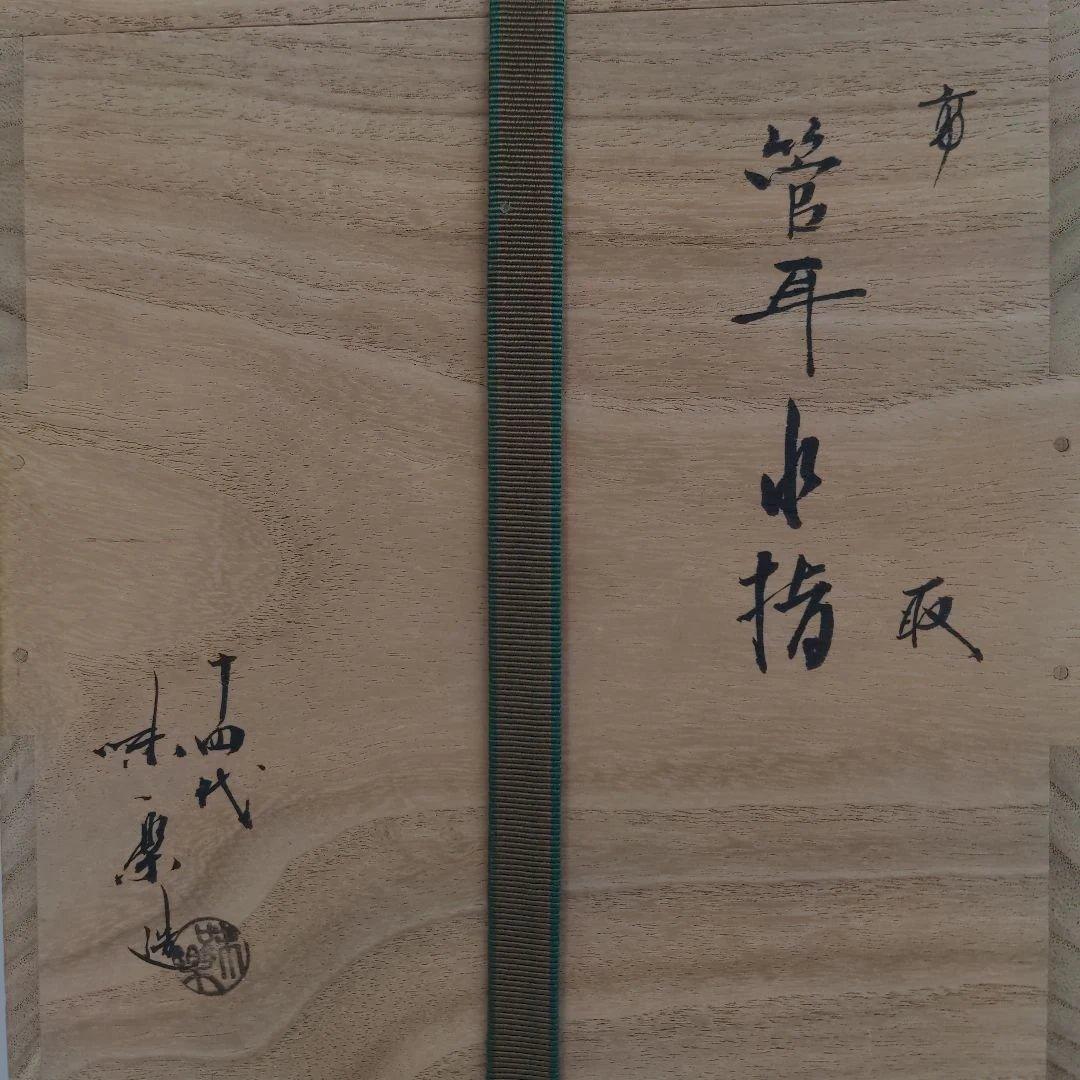 高取
管耳水指
十四代
味楽造